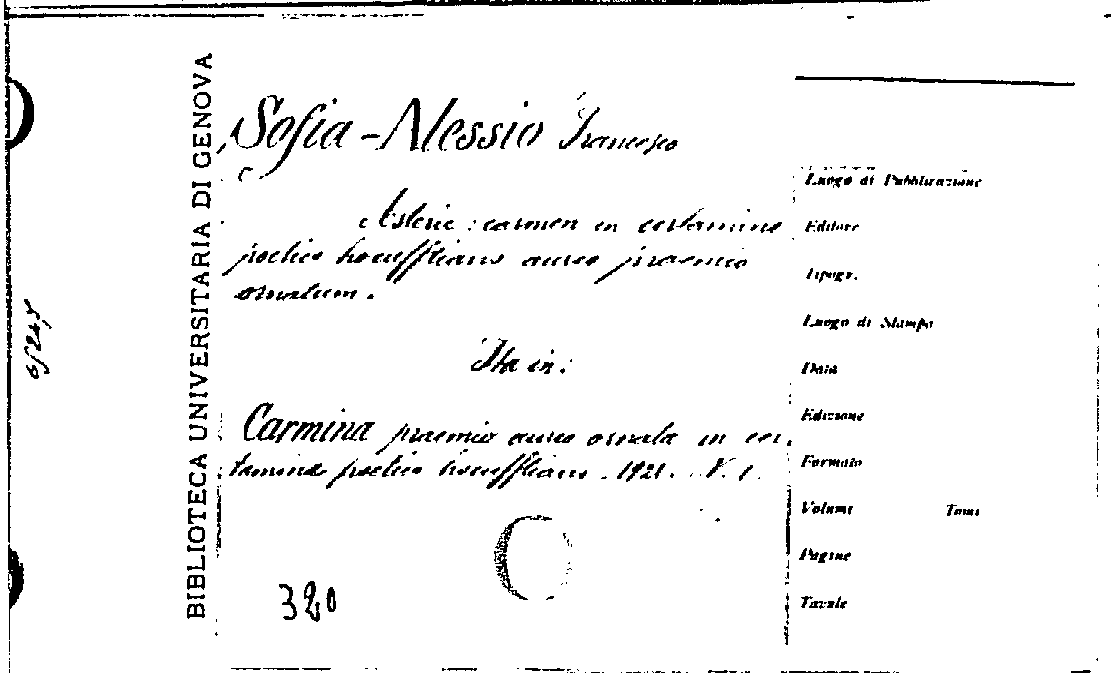 BIBLIOTECA UNIVERSITARIA DI GENOVA
Sofia-Alessio Francesco
Asterie: carmen in certamine
poetico hoeufftiano aureo praemio
ornatum.
Sta in:
Carmina praemio aureo ornata in cer-
tamine poetico hoeufftiano. 1921. N. 1.
320
Luogo di Pubblicazione
Editore
Tipogr.
Luogo di Stampa
Data
Edizione
Formato
Volumi Tomi
Pagine
Tavole